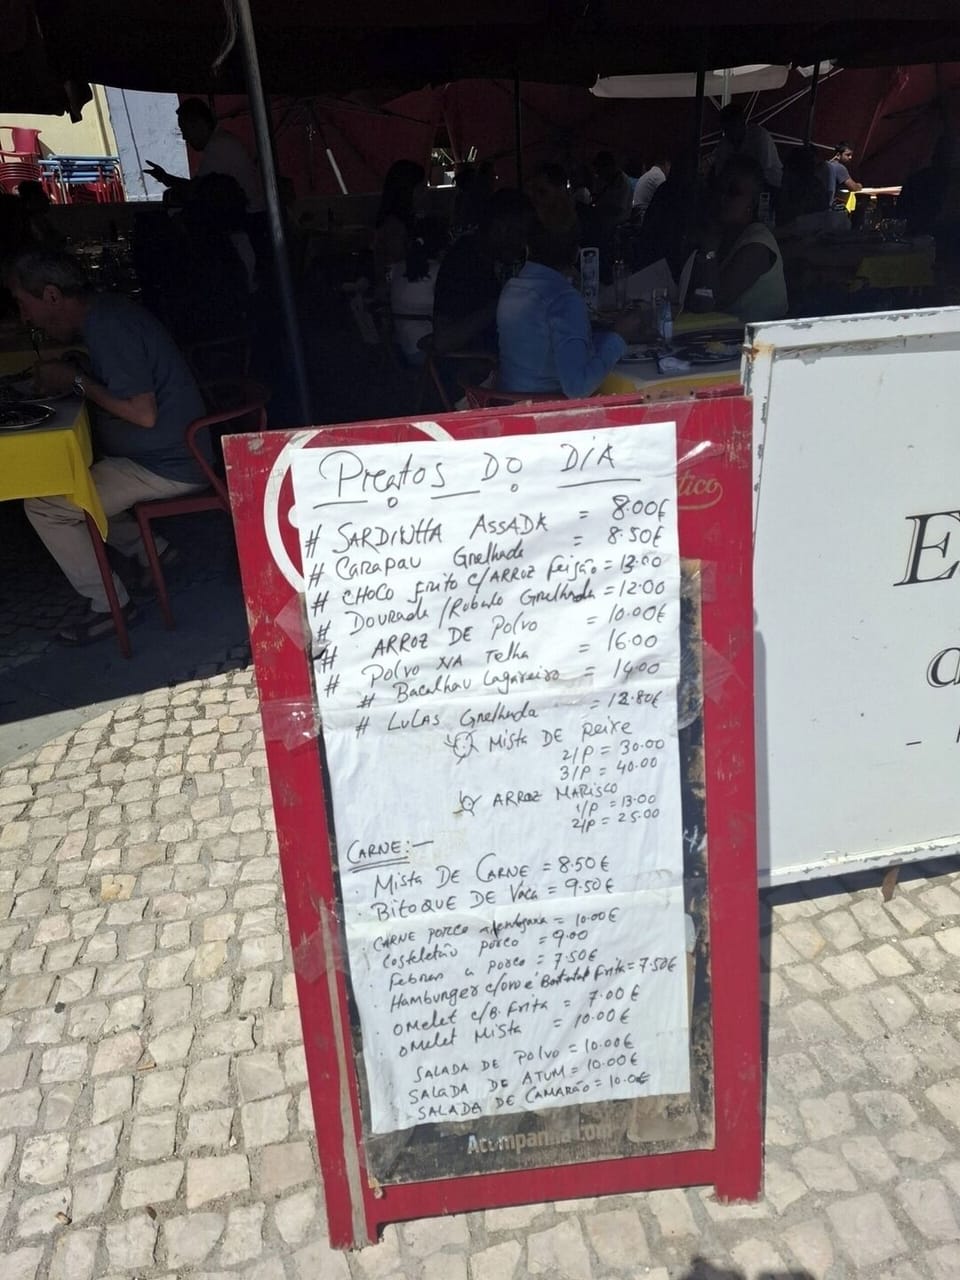 Pratos Do DIA
# SARDINHA ASSADA = 8.00€
# CARAPAU Grelhada = 8.50€
# CHOCO Frito c/ARROZ feijão = 13.00
# DOURADA /Robalo Grelhada = 12.00
# ARROZ DE Polvo = 10.00€
# Polvo NA Telha = 16.00
# Bacalhau Lagareiro = 14.00
# LULAS Grelhada = 12.80€
Mista DE Peixe
2/P = 30.00
3/P = 40.00
ARROZ MARISCO
1/P = 13.00
2/P = 25.00
CARNE:-
. Mista DE CARNE = 8.50€
. BITOQUE DE Vaca = 9.50€
. CARNE PORCO = 10.00€
. Costeletão porco = 9.00
. Febras a porco = 7.50€
. Hamburger c/ovo e Batata Frita = 7.50€
. OMelet c/B. Frita = 7.00€
. OMelet Mista = 10.00€
SALADA DE Polvo = 10.00€
SALADA DE ATUM = 10.00€
SALADA DE CAMARÃO = 10.0€
tico
Acompanha com
E